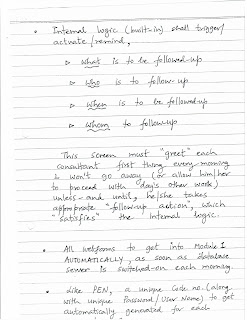 • Internal logic (built-in) shall trigger/
actuate/remind,
▹ what is to be followed-up
▹ Who is to follow-up
▹ When is to be followed-up
▹ Whom to follow-up
This screen must "greet" each
consultant first thing every-morning
& won't go away (or allow him/her
to proceed with day's other work)
unless- and until, he/she takes
appropriate "follow-up action", which
"satisfies" the Internal logic.
• All webforms to get into Module 1
AUTOMATICALLY, as soon as database
server is switched-on each morning.
• Like PEN, a unique Code no. (along
with unique Password/User Name) to get
automatically generated for each